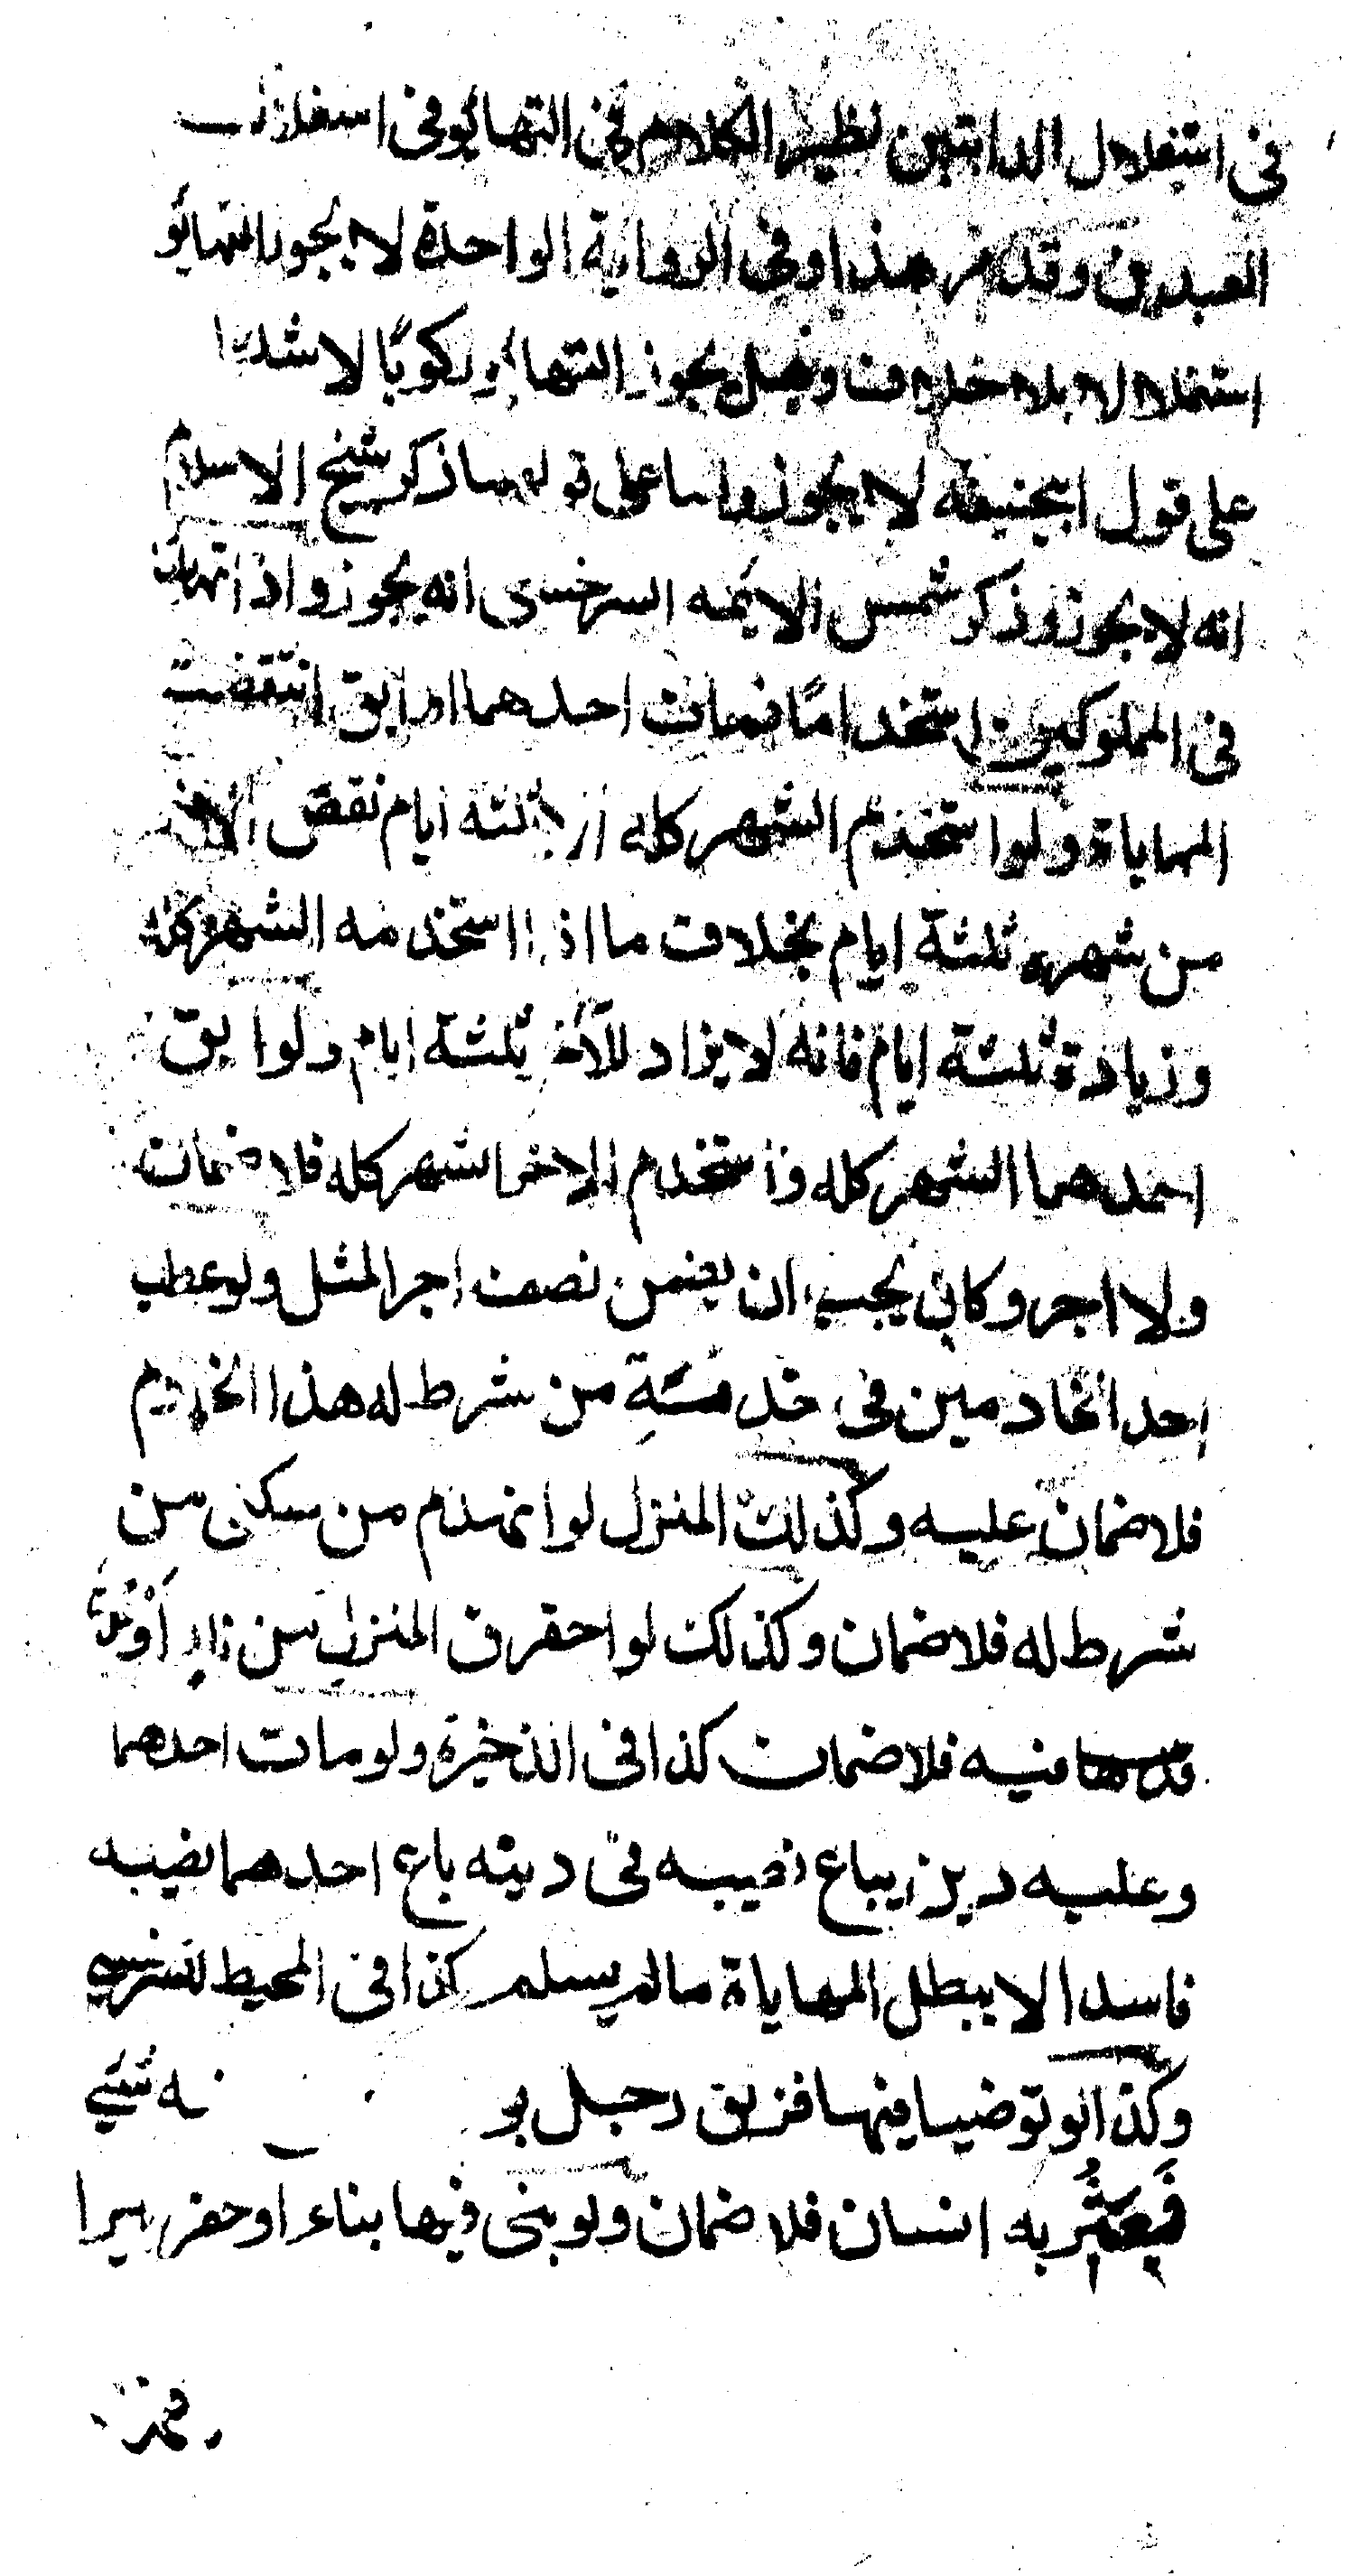 في استغلال الدابتين نظير الكلام في التهايؤ في استغلال
العبدين وقد مر هذا وفي الرواية الواحدة لا يجوز التهايؤ
استغلالا بلا خلاف وهل يجوز التهايؤ ركوبًا لا شك
على قول ابيحنيفه لا يجوز واما على قولهما ذكر شيخ الاسلام
انه لا يجوز وذكر شمس الايمه السرخسى انه يجوز واذا تهايئا
في المملوكين استخدامًا فمات احدهما او ابق انتقضت
المهاياة ولو استخدم الشهر كله الا ثلثه ايام نقص الاخر
من شهره ثلثة ايام بخلاف ما اذا استخدمه الشهر كله
وزيادة ثلثة ايام فانه لا يزاد للآخر ثلثة ايام ولو ابق
احدهما الشهر كله واستخدم الاخر الشهر كله فلا ضمان
ولا اجر وكان يجب ان يضمن نصف اجر المثل ولو عطب
احد الخادمين في خدمةِ من شرط له هذا الخادم
فلا ضمان عليه وكذلك المنزل لو انهدم من سكنى من
شرط له فلا ضمان وكذلك لو احترق المنزل من نار أوقدها
فيه فلا ضمان كذا في الذخيرة ولو مات احدهما
وعليه دين يباع نصيبه في دينه باع احدهما نصيبه
فاسدا لا يبطل المهاياة ما لم يسلم كذا في المحيط للسرخسي
وكذا لو توضيا فيها فزلق رجل بو ‍ـه شيئ
فَعَثُر به انسان فلا ضمان ولو بنى فيها بناء او حفر بيرا